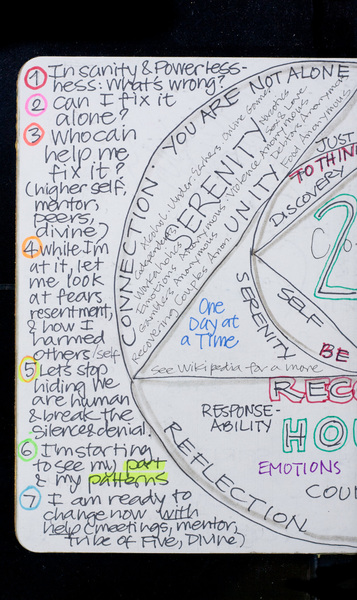 1 Insanity & Powerless-
ness: What's wrong?
2 can I fix it
alone?
3 Who can
help me
fix it?
(higher self,
mentor,
peers,
divine)
4 While I'm
at it, let
me look
at fears,
resentment,
& how I
harmed
others/self
5 Let's stop
hiding We
are human
& break the
silence & denial.
6 I'm starting
to see my part
& my patterns
7 I am ready to
change now with
help (meetings, mentor,
Tribe of Five, Divine)
CONNECTION · YOU ARE NOT ALONE
Alcohol · Under Earners · Online Gamers
Workaholics
Narcotics
Sex & Love
Emotions Anonymous · Violence Anonymous
Debtors Anonymous
Gamblers Anonymous
Food Anonymous
Recovering Couples Anon.
SERENITY
UNITY
One
Day at
a Time
See Wikipedia for a more
JUST
TO THIN
DISCOVERY
2
SERENITY
SELF
BE
RECO
RESPONSE-
ABILITY
HO
EMOTIONS
COU
REFLECTION